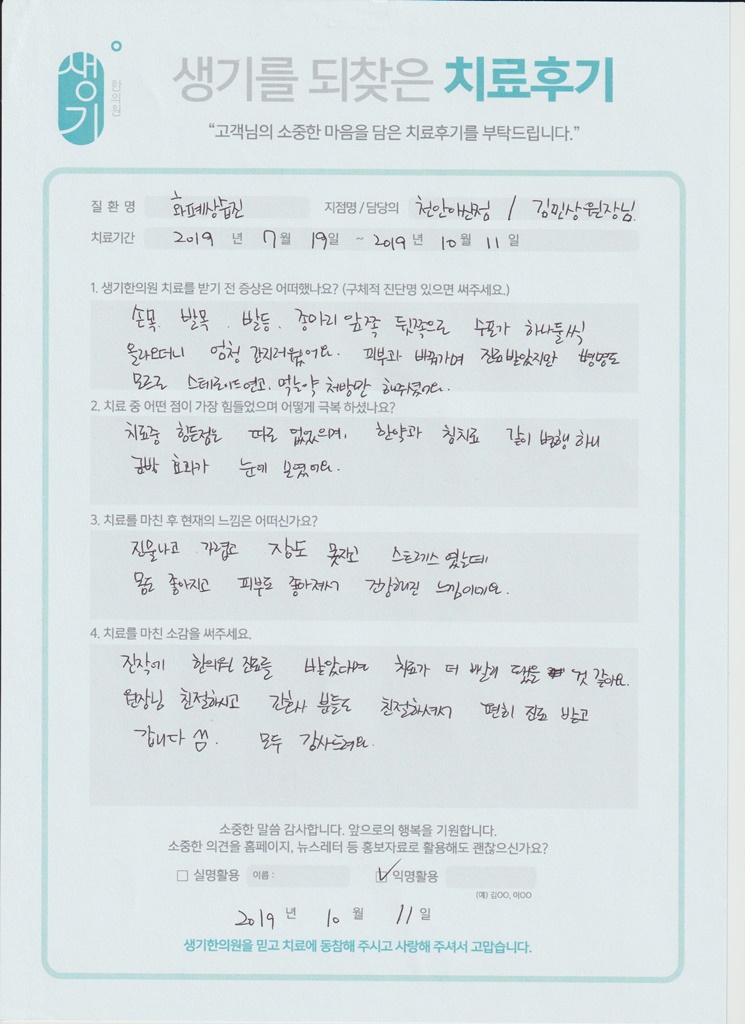 생기 한의원
생기를 되찾은 치료후기
“고객님의 소중한 마음을 담은 치료후기를 부탁드립니다.”
질 환 명 화폐상습진 지점명 / 담당의 천안아산점 / 김민상 원장님
치료기간 2019 년 7월 19일 ~ 2019 년 10 월 11 일
1. 생기한의원 치료를 받기 전 증상은 어떠했나요? (구체적 진단명 있으면 써주세요.)
손목. 발목. 발등. 종아리 앞쪽 뒷쪽으로 수포가 하나둘씩
올라오더니 엄청 간지러웠어요. 피부과 바꿔가며 진료받았지만 병명도
모르고 스테로이드연고, 먹는약 처방만 해주셨어요.
2. 치료 중 어떤 점이 가장 힘들었으며 어떻게 극복 하셨나요?
치료중 힘든점은 따로 없었으며, 한약과 침치료 같이 병행 하니
금방 효과가 눈에 보였어요.
3. 치료를 마친 후 현재의 느낌은 어떠신가요?
진물나고 가렵고 잠도 못자고 스트레스 였는데
몸도 좋아지고 피부도 좋아져서 건강해진 느낌이에요.
4. 치료를 마친 소감을 써주세요.
진작에 한의원 진료를 받았다면 치료가 더 빨리 됐을 것 같아요.
원장님 친절하시고 간호사 분들도 친절하셔서 편히 진료 받고
갑니다 모두 감사드려요.
소중한 말씀 감사합니다. 앞으로의 행복을 기원합니다.
소중한 의견을 홈페이지, 뉴스레터 등 홍보자료로 활용해도 괜찮으신가요?
□ 실명활용 이름 : ☑ 익명활용
(예) 김OO, 이OO
2019 년 10 월 11 일
생기한의원을 믿고 치료에 동참해 주시고 사랑해 주셔서 고맙습니다.